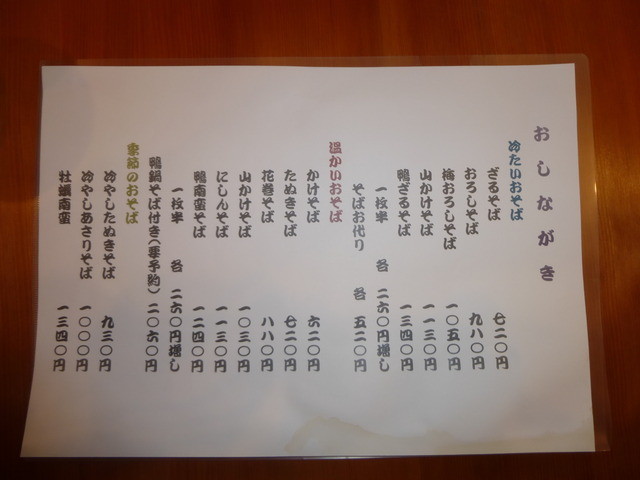 おしながき
冷たいおそば
ざるそば 七二〇円
おろしそば 九八〇円
梅おろしそば 一〇五〇円
山かけそば 一一三〇円
鴨ざるそば 一三四〇円
一枚半 各 二六〇円増し
そばお代り 各 五二〇円
温かいおそば
かけそば 六二〇円
たぬきそば 七二〇円
花巻そば 八八〇円
山かけそば 一〇三〇円
にしんそば 一一三〇円
鴨南蛮そば 一二四〇円
一枚半 各 二六〇円増し
鴨鍋そば付き(要予約) 二〇六〇円
季節のおそば
冷やしたぬきそば 九三〇円
冷やしあさりそば 一〇〇〇円
牡蠣南蛮 一三四〇円